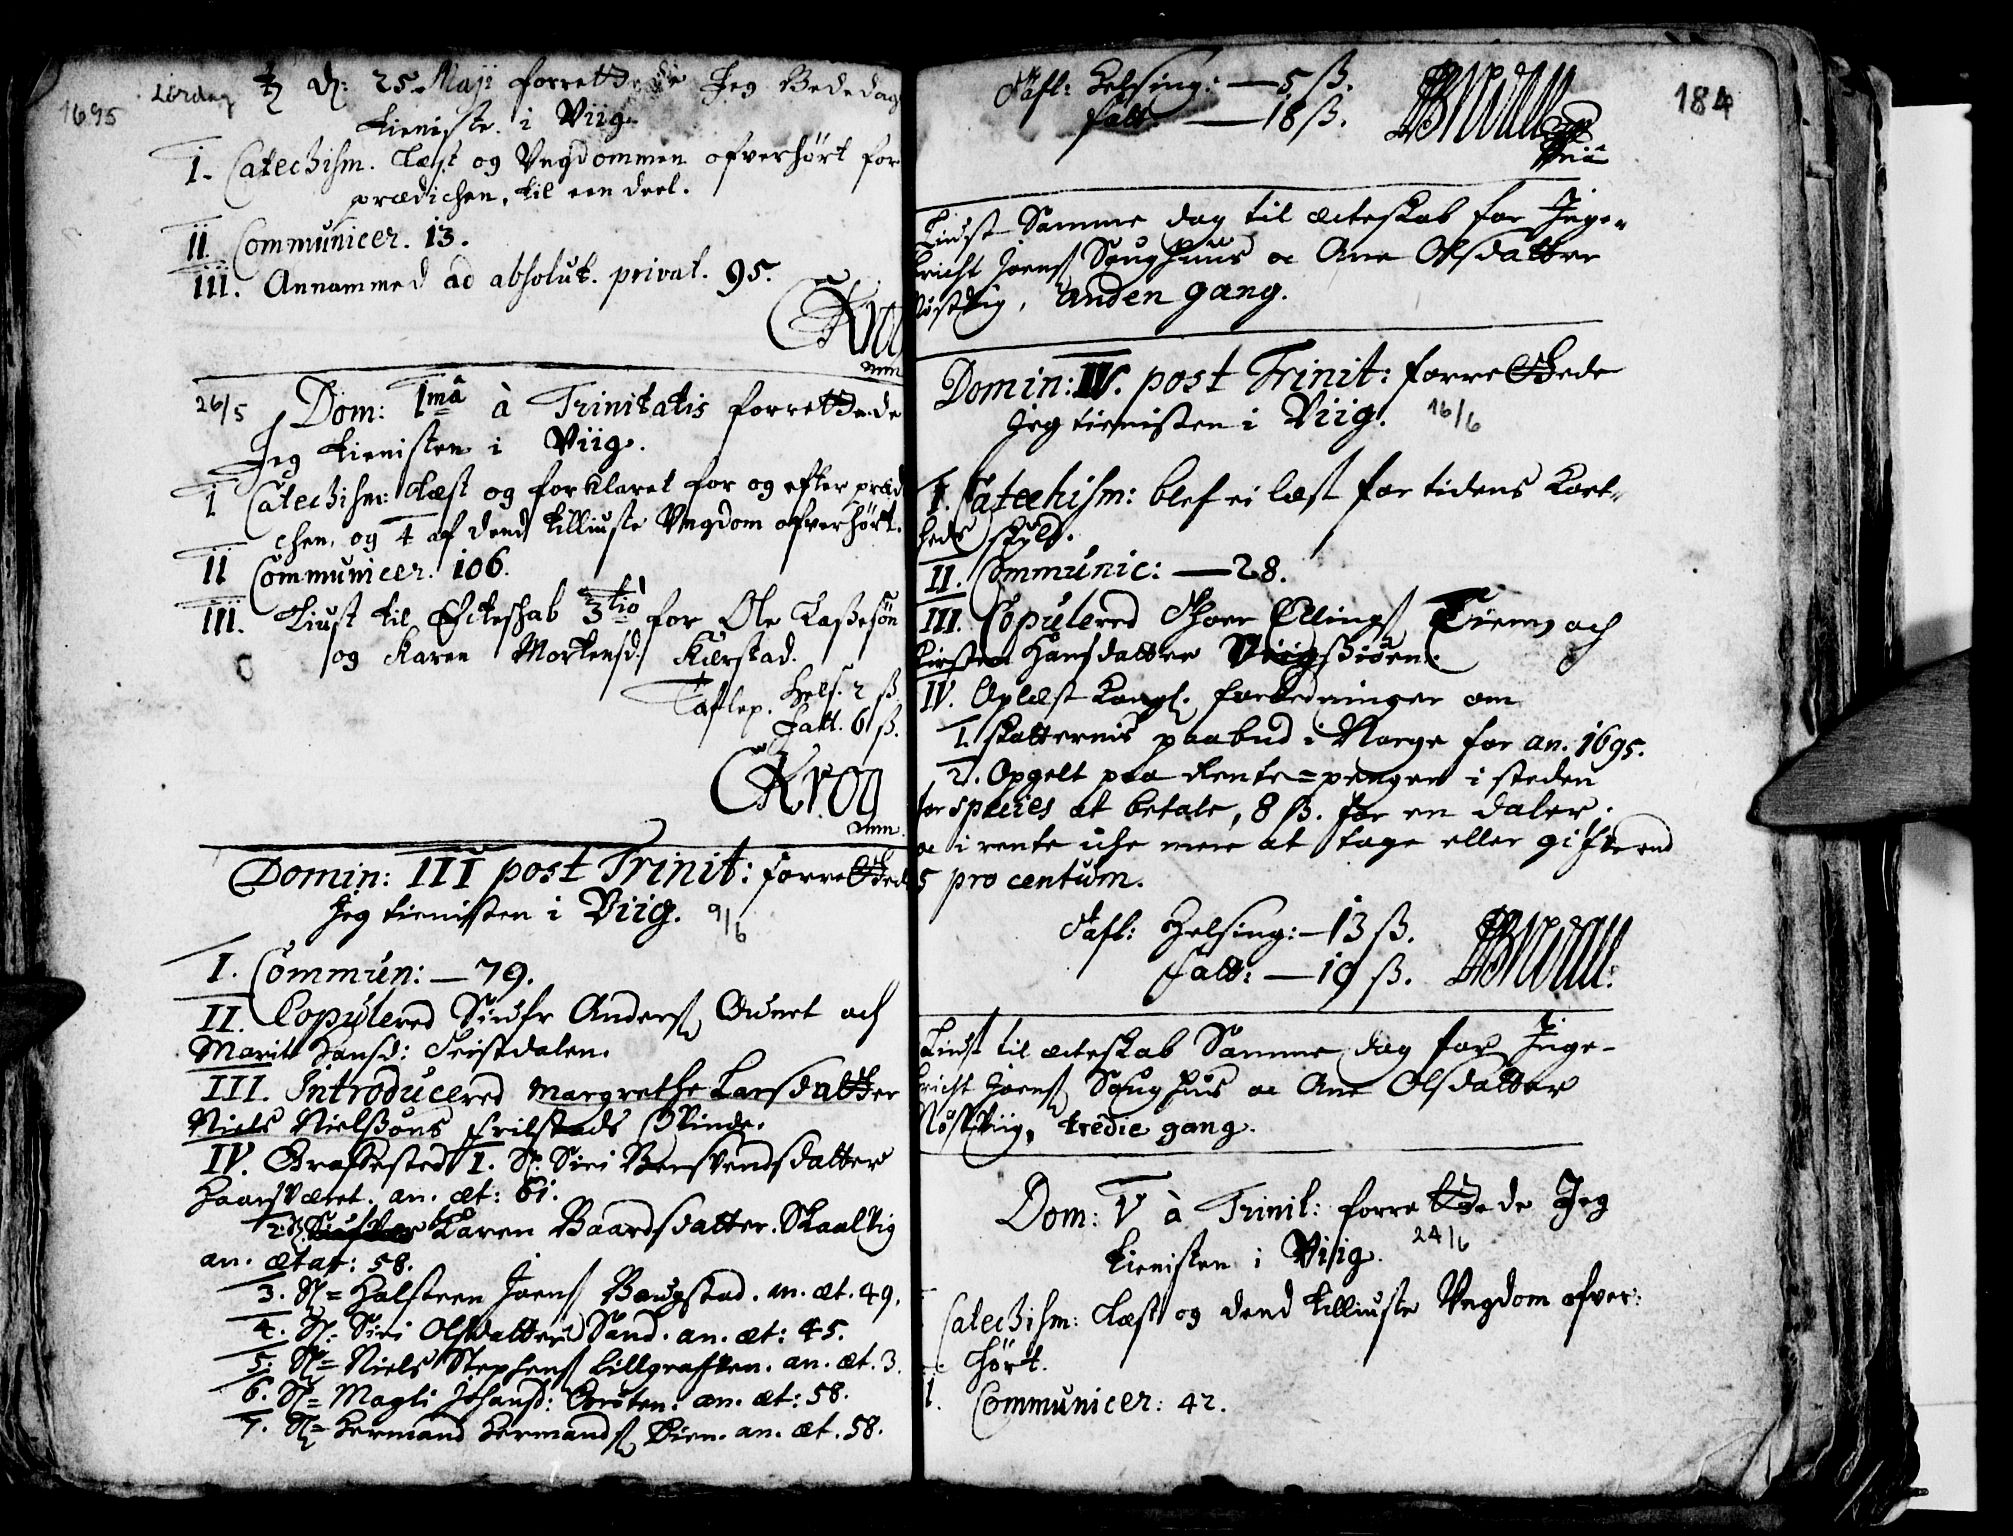 1695
Lørdag ♄ d: 25 Maji forrettede Jeg Bededags
tieniste i Viig.
I. Catechism. Læst og Ungdommen ofverhört for
prædichen, til een deel.
II. Communicer. 13.
III. Annammed ad absolut. privat. 95.
CKrog
mm
26/5 Dom: 1mâ à Trinitatis forrettede
Jeg tienisten i Viig.
I Catechism: Læst og forklaret for og efter præd
chen, og 4 af dend tilliuste Ungdom ofverhört.
II Communicer. 106.
III. Liust til Ecteschab 3tiò for Ole Laßesön
og Karen Mortensd: Kierstad.
Taflep. Hels. 2 ß.
Fatt. 6 ß.
CKrog
mm.
Domin: III post Trinit: forrettede
Jeg tienisten i Viig. 9/6
I. Commun: — 79.
II. Copulered Siufr Anders: Ounet och
Marit Hansd: Seistdalen.
III. Introducered Margrethe Larsdatter
Niels Nielßöns Frilstads Qvinde.
IV. Graffested 1. Sl. Siri Bersvendsdatter
Haansværet. an. æt: 61.
2. Sl. Karen Baardsdatter. Skaalvig
an. ætat: 58.
3. Sl= Halsteen Joens: Baugstad. an. æt. 49.
4. Sl: Siri Olsdatter Sand. an. æt: 45.
5. Sl= Niels Stephens: Lillgraften. an. æt. 3.
6. Sl= Magli Johansd: Orsten. an. æt: 58.
7. Sl= Hermand Hermands: Lien. an. æt. 58.
184
Tafl: Helsing: — 5 ß.
Fatt: — 18 ß.
Liust Samme dag til ecteskab for Inge-
bricht Joens: Saughuus oc Ane Olsdatter
Nöstvig, anden gang.
Domin: IV. post Trinit: forrettede
Jeg tienisten i Viig. 16/6
I. Catechism: blef ei læst for tidens kort-
heds skyld.
II. Communic: — 28.
III. Copulered Thoer Ellings: Tiem och
Kirsten Hansdatter Viigsiören.
IV. Oplæst Kongl. forordninger om
1. skatternis paabud i Norge for an. 1695.
2. Opgelt paa Rente=pengen i steden
for species at betale, 8 ß. for en daler,
oc i rente iche mere at tage eller gifte end
5 pro centum.
Tafl: Helsing: — 13 ß.
Fatt: — 19 ß.
Liust til ecteskab Samme dag for Inge-
bricht Joens: Saughuus oc Ane Olsdatter
Nöstviig, tredie gang.
Dom: V à Trinit: forrettede Jeg
tienisten i Viig. 24/6
Catechism: Læst og dend tilliuste Ungdom ofver:
hört.
Communicer: 42.